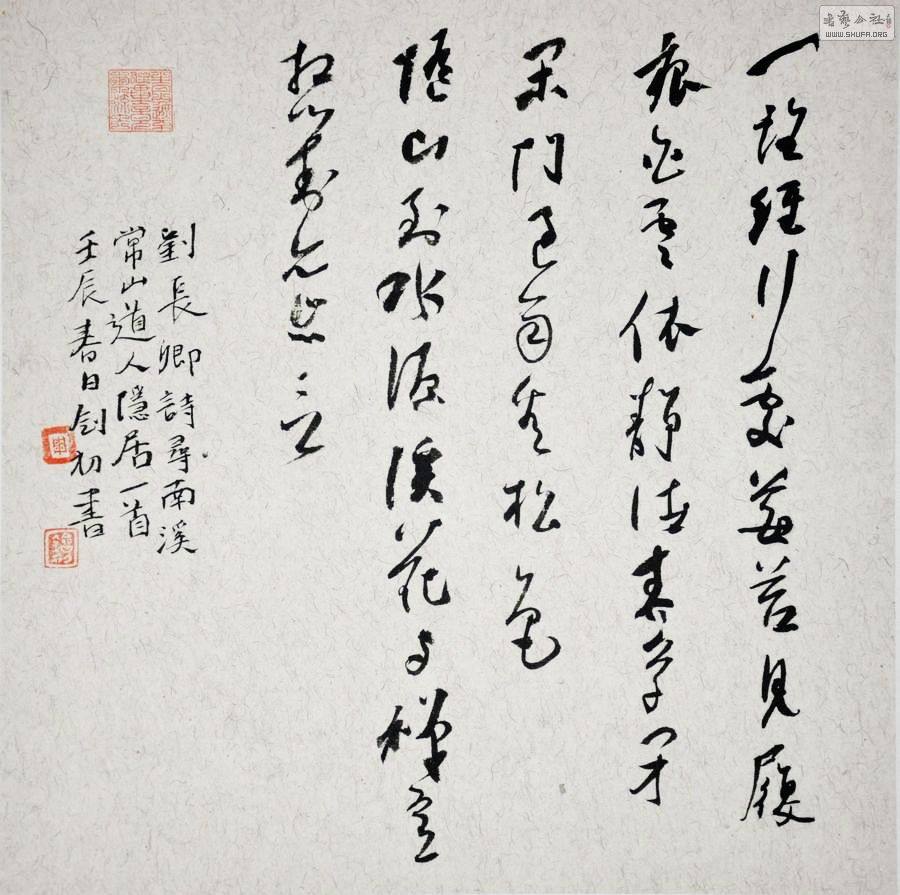 一路經行處莓苔見履
痕白雲依靜渚春草閉
閒門過雨看松色
隨山到水源溪花與禪意
相對亦忘言
劉長卿詩尋南溪
常山道人隱居一首
壬辰春日剑初書
書藝公社
WWW.SHUFA.ORG